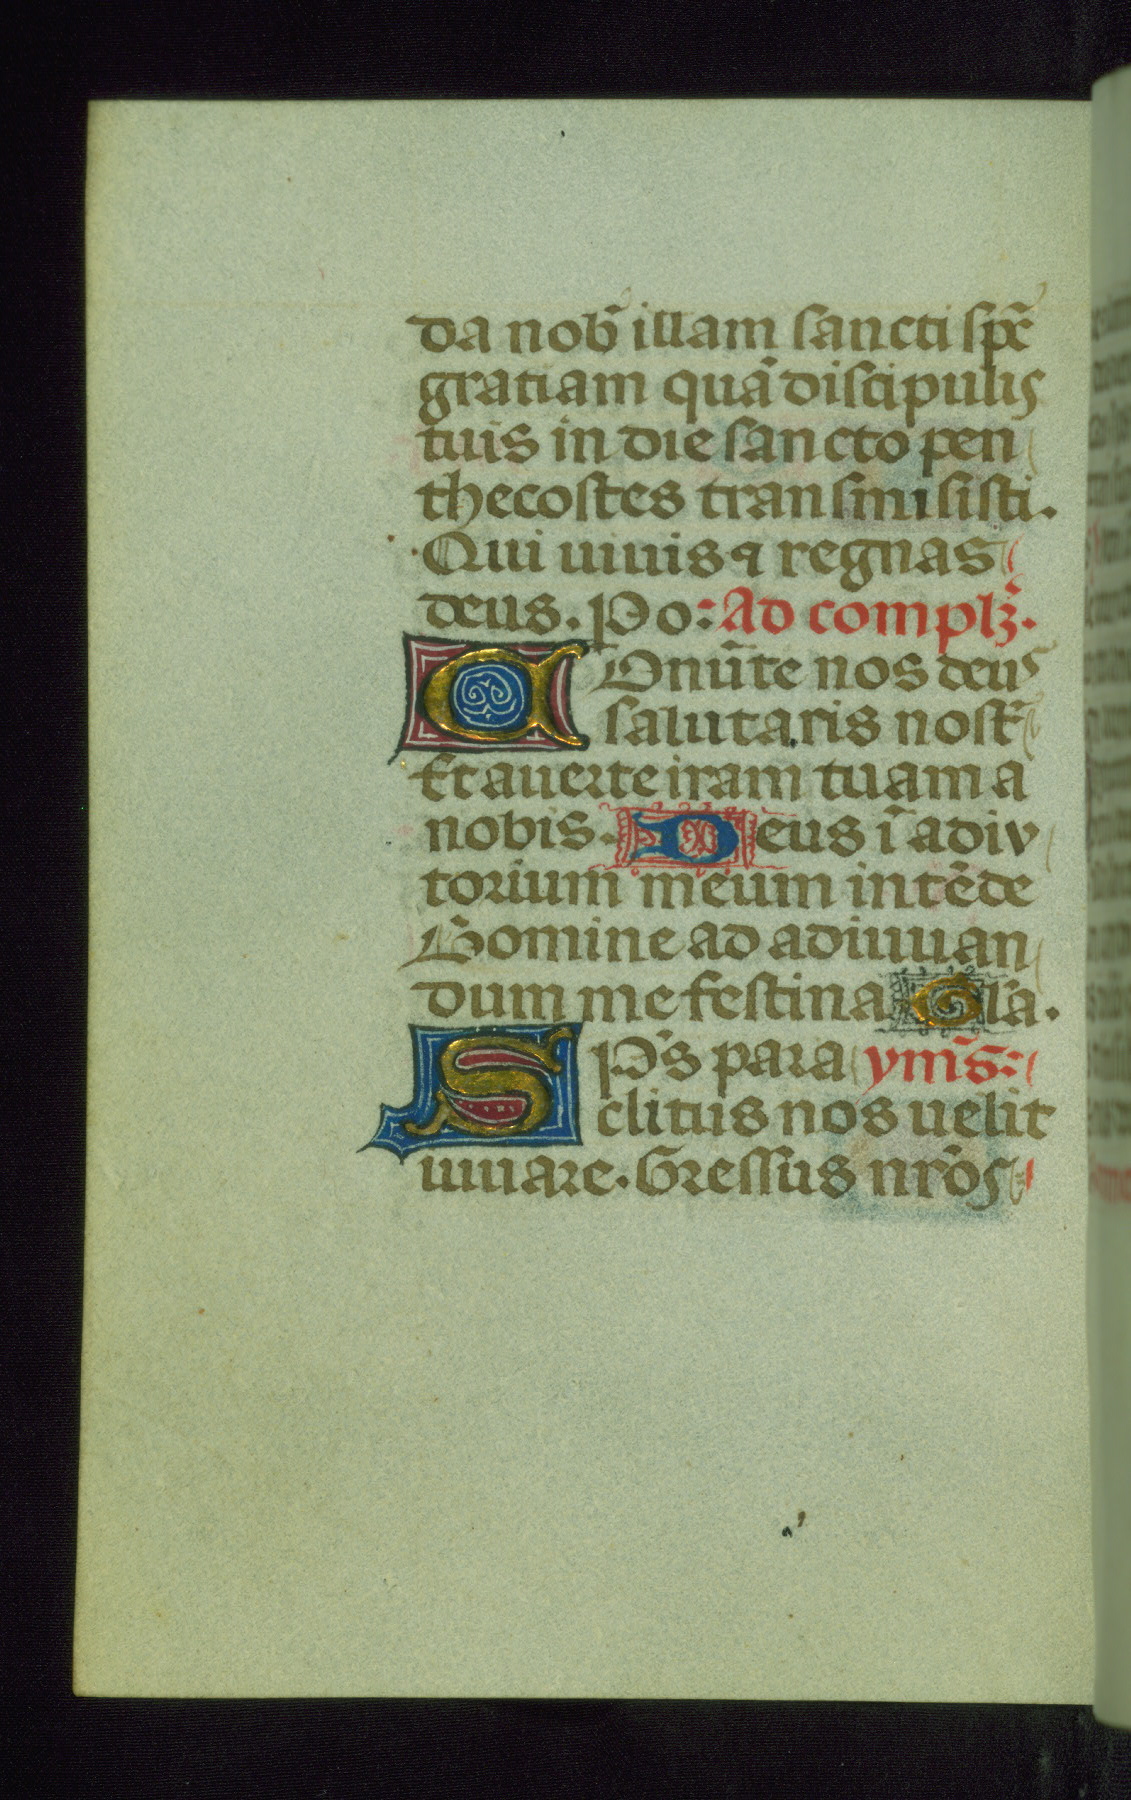 da nob̃ illam sancti sp̃c
gratiam quã discipulis
tuis in die sancto pen
thecostes transmisisti.
Qui uiuis ⁊ regnas
deus. Po: Ad complꝫ̃.
COnũte nos deus
salutaris nost̃
Et auerte iram tuam a
nobis. Deus ĩ adiv
torium meum intẽde
Domine ad adiuuan
dum me festina Gl̃a.
SP̃s para ym̃s:
clitus nos uelit
iuuare. Gressus nr̃os